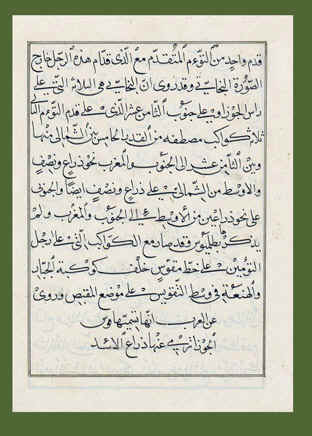 قدم واحد من التوءم المتقدم مع الذي قدام هذه الرجل خارج
الصورة البخاتي وقد روى ان البخاتي هو الثلاثة التي على
راس الجوزا ويلي جنوب الثامن عشر الذي على قدم التوءم
ثلاثة كواكب مصطفه من القدر الخامس بين الشمالي منها
وبين الثامن عشر الى الجنوب والمغرب نحو ذراع ونصف
والاوسط من الشمالي على ذراع ونصف ايضا والجنوبي
على نحو ذراعين من الاوسط الى الجنوب والمغرب ولم
يذكرها بطلميوس وقد صار مع الكواكب التي على رجل
التوءمين على خط مقوس خلف كوكبة الجبار
والهنعة في وسط التقويس على موضع المقبض وروى
عن العرب انها تسميها قوس
الجوزا ترمي عنها ذراع الاسد